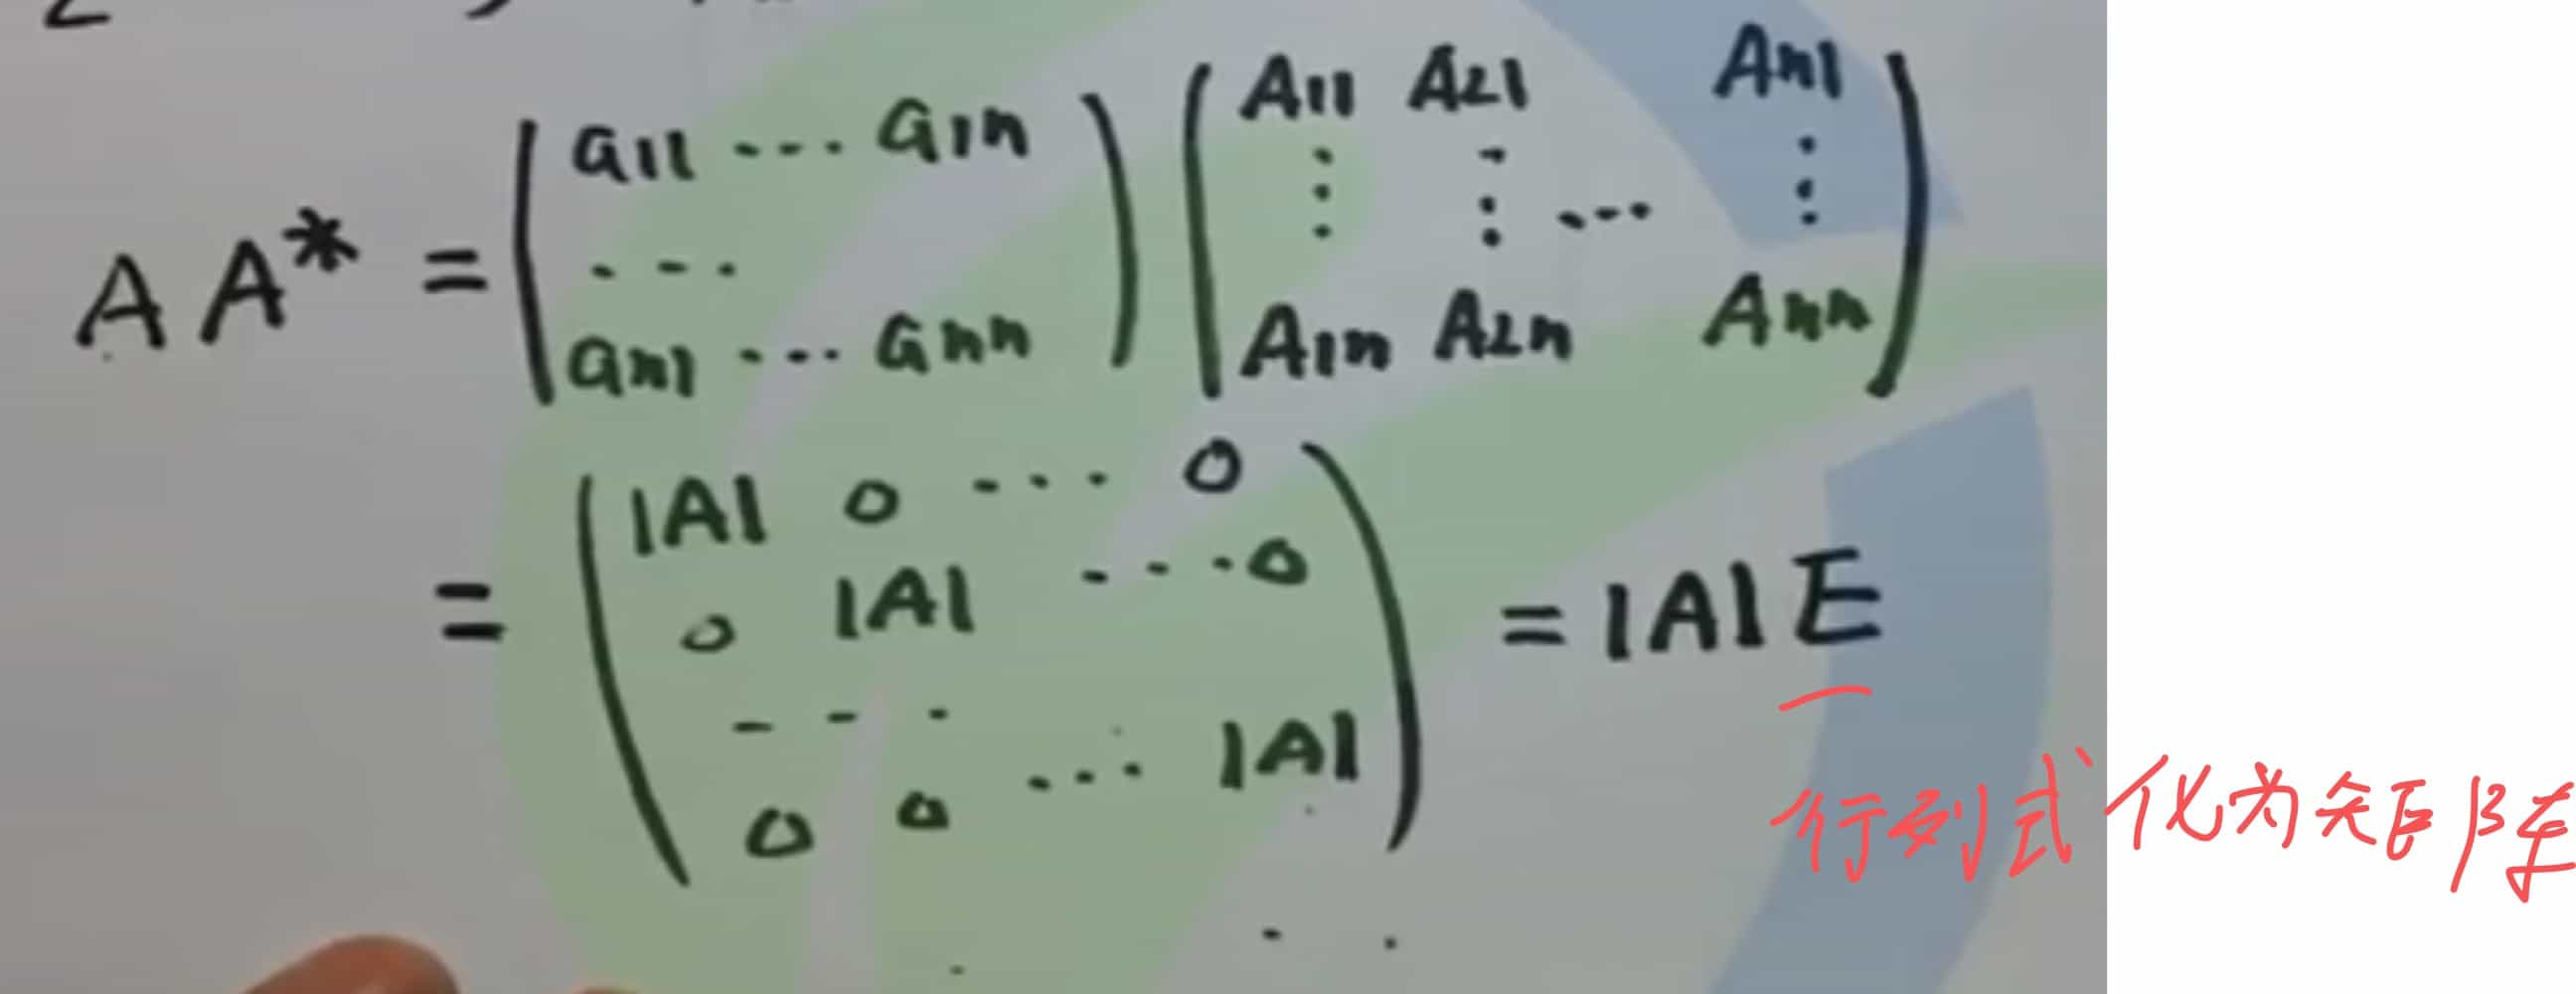 AA* = ( a11 ... a1n ) ( A11 A21 An1 )
... ⋮ ⋮ ... ⋮
an1 ... ann A1n A2n Ann
= ( |A| 0 ... 0 )
0 |A| ... 0
- - -
0 0 ... |A|
= |A|E
行列式化为矩阵